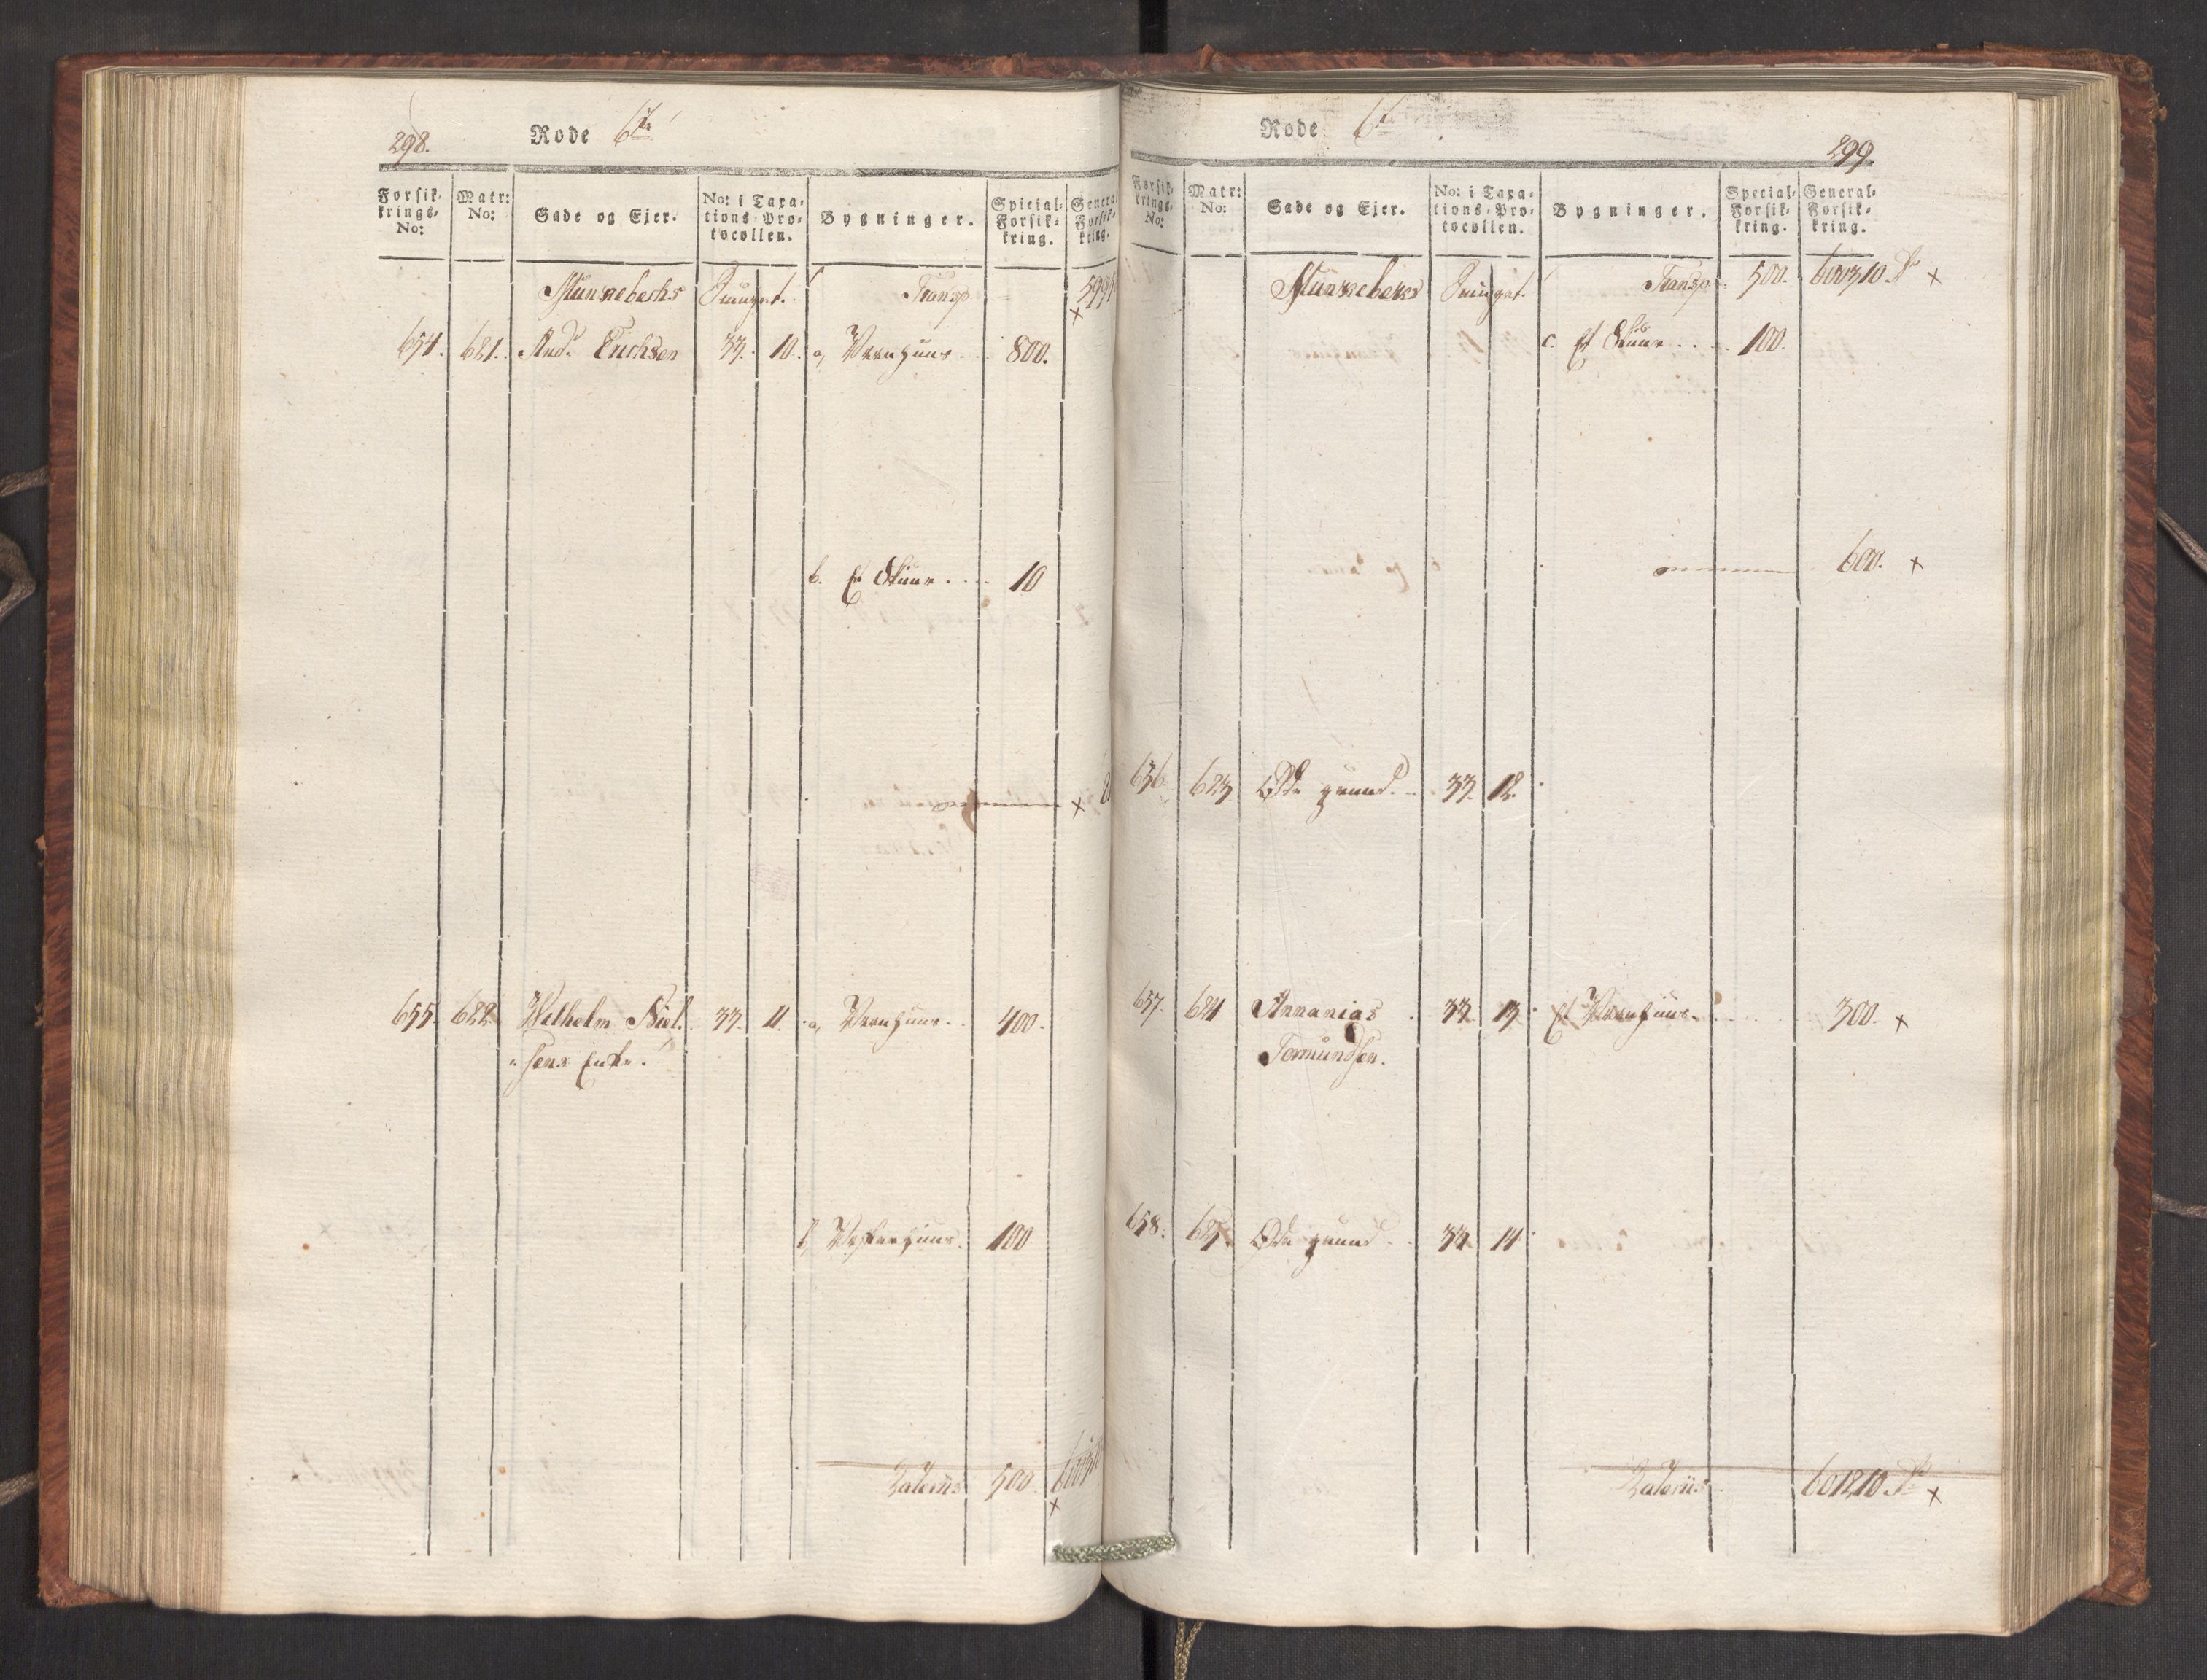 298.
Rode 6te
Forsik-
krings-
No:
Matr:
No:
Gade og Ejer.
No: i Taxa-
tions-Pro-
tocollen.
Bygninger.
Spicial-
Forsik-
kring.
General
Forsik-
kring.
Transp
654. 621. And. Erichsen 33. 10. a, Vaanhuus 800.
b. Et Skuur 10
655. 622 Wilhelm Niel-
sens Enke. 33. 11. a, Vaanhuus 400.
100
Lateris 500
Rode 6te
299
Forsik-
krings-
No:
Matr:
No:
Gade og Ejer.
No: i Taxa-
tions-Pro-
tocollen.
Bygninger.
Special-
Forsik-
kring.
General-
Forsik-
kring.
Transp 500. 600310
c. Et Skuur 100.
600.
656 623 Øde grund 33. 12.
657. 624 Annanias 33 13 Et Vaanhuus 300.
Tormundsen.
658. 625. Øde grund 33 14
Lateris 601210